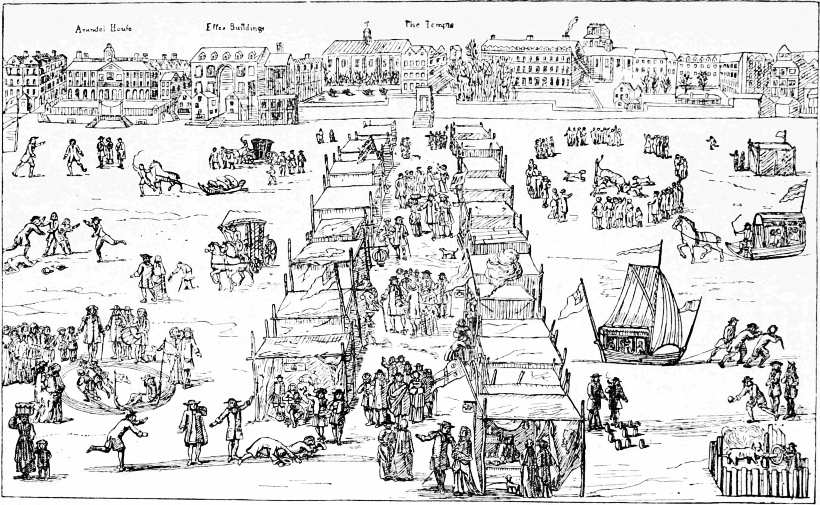 Arundel House
Essex Buildings
The Temple